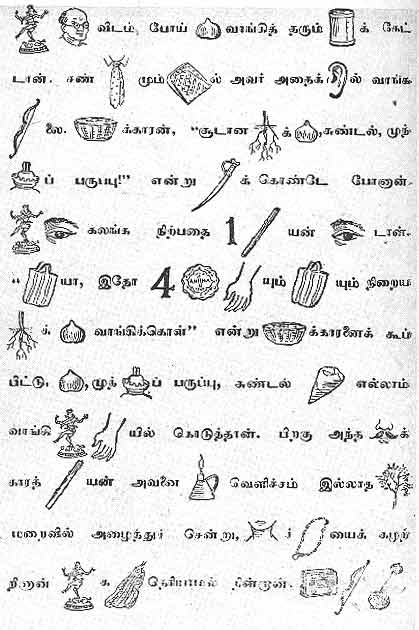 விடம் போய் வாங்கித் தரும் க் கேட்
டான். சண் மும் ல் அவர் அதைக் ல் வாங்க
லை. க்காரன், "சூடான க் , சுண்டல், முந்
ப் பருப்பு!" என்று க் கொண்டே போனான்.
கலங்க நிற்பதை 1 யன் டான்.
" யா, இதோ 4 ANNA யும் யும் நிறைய
க் வாங்கிக்கொள்" என்று க்காரனைக் கூப்
பிட்டு, , முந் ப் பருப்பு, சுண்டல் எல்லாம்
வாங்கி யில் கொடுத்தான். பிறகு அந்த க்
காரத் யன் அவனை வெளிச்சம் இல்லாத
மறைவில் அழைத்துச் சென்று, ர் யைக் கழற்
றினான் க தெரியாமல் நின்றான்.